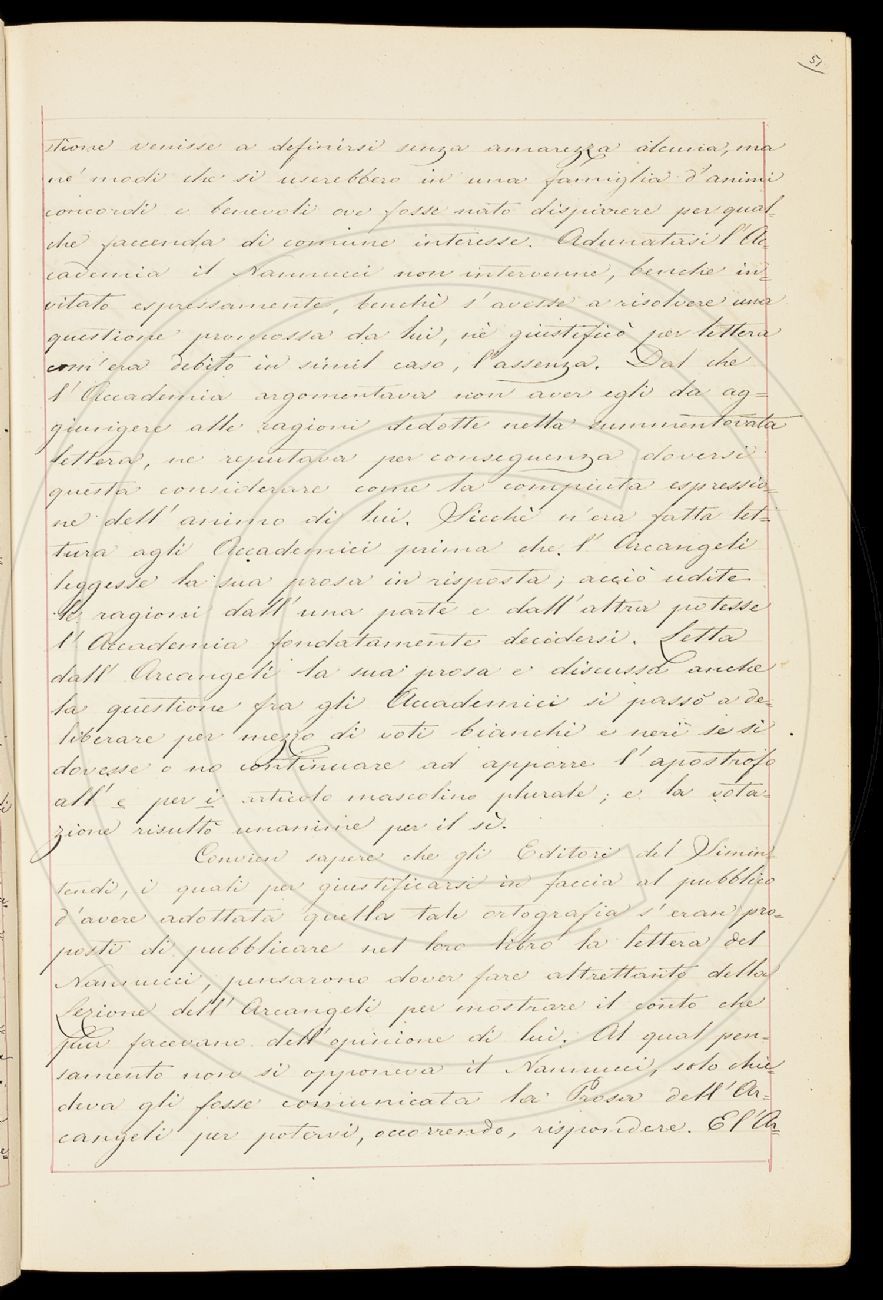 51
stione venisse a definirsi senza amarezza alcuna, ma
ne' modi che si userebbero in una famiglia d'animi
concordi e benevoli ove fosse nato disparere per qual=
che faccenda di comune interesse. Adunatasi l'Ac=
cademia il Nannucci non intervenne, benche in=
vitato espressamente, benchè s'avesse a risolvere una
questione promossa da lui, nè giustificò per lettera
com'era debito in simil caso, l'assenza. Dal che
l'Accademia argomentava non aver egli da ag=
giungere alle ragioni dedotte nella summentovata
lettera, ne reputava per conseguenza doversi
questa considerare come la compiuta espressio=
ne dell'animo di lui. Sicchè n'era fatta let=
tura agli Accademici prima che l'Arcangeli
leggesse la sua prosa in risposta; acciò udite
le ragioni dall'una parte e dall'altra potesse
l'Accademia fondatamente decidersi. Letta
dall'Arcangeli la sua prosa e discussa anche
la questione fra gli Accademici si passò a de=
liberare per mezzo di voti bianchi e neri se si
dovesse o no continuare ad apporre l'apostrofo
all'e per i articolo mascolino plurale; e la vota=
zione risultò unanime per il sì.
Convien sapere che gli Editori del Simin=
tendi, i quali per giustificarsi in faccia al pubblico
d'avere adottata quella tale ortografia s'eran pro=
posti di pubblicare nel loro libro la lettera del
Nannucci, pensarono dover fare altrettanto della
Lezione dell'Arcangeli per mostrare il conto che
pur facevano dell'opinione di lui. Al qual pen=
samento non si opponeva il Nannucci, solo chie=
deva gli fosse comunicata la Prosa dell'Ar=
cangeli per potervi, occorrendo, rispondere. E l'Ar=